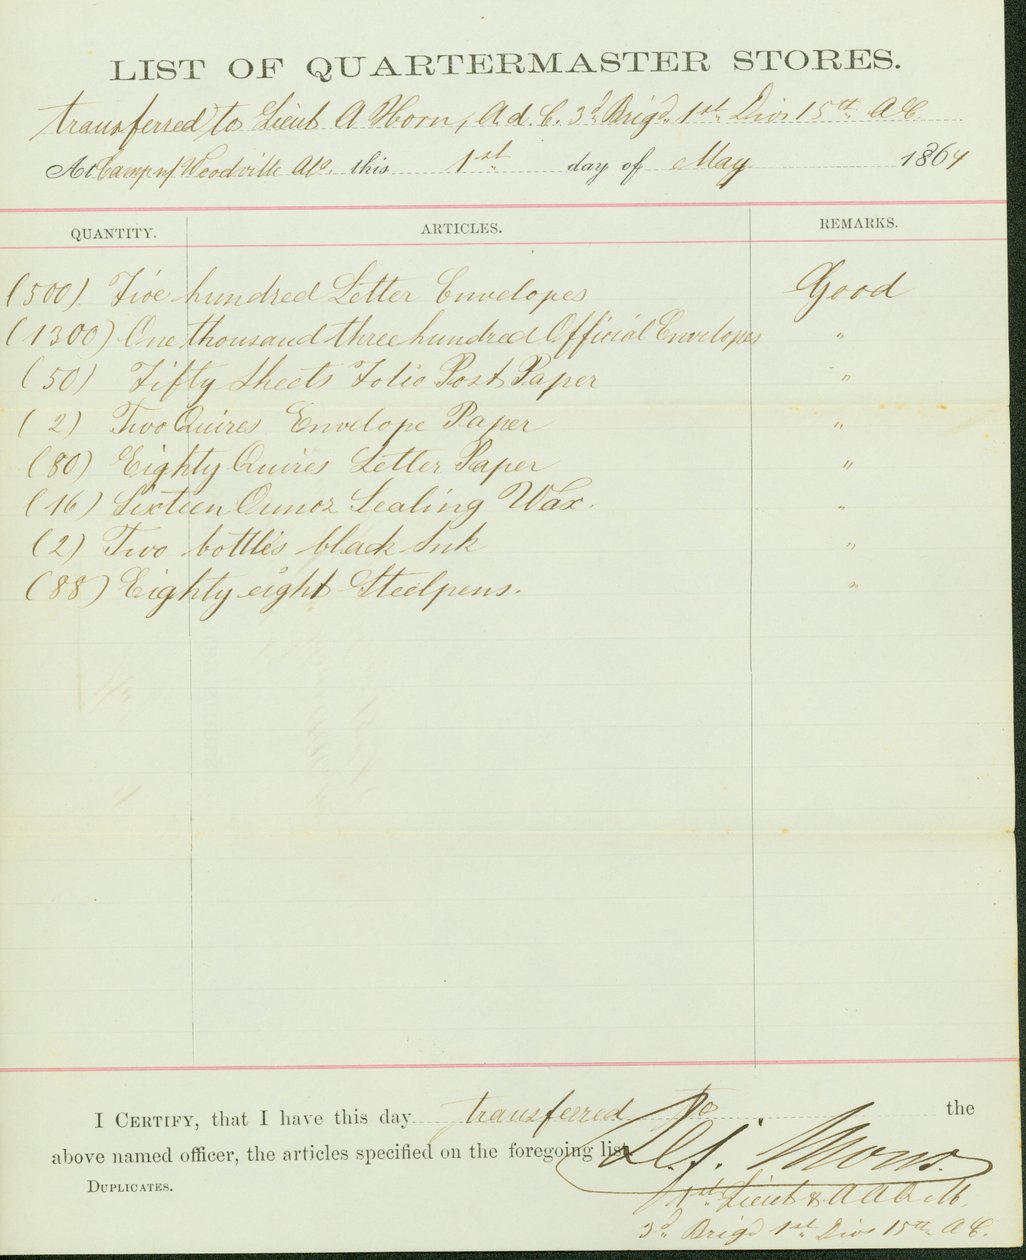 LIST OF QUARTERMASTER STORES.
transferred to Lieut A Horn, A. d. C. 3d Brigd 1st Divis 15th A C.
At Camp nf Woodville Ala. this 1st day of May 1864
QUANTITY. ARTICLES. REMARKS.
(500) Five hundred Letter Envelopes Good
(1300) One thousand three hundred Official Envelopes "
(50) Fifty Sheets Folio Post Paper "
(2) Two Quires Envelope Paper "
(80) Eighty Quires Letter Paper "
(16) Sixteen Ounoz Sealing Wax. "
(2) Two bottles black Ink "
(88) Eighty eight Steelpens. "
I CERTIFY, that I have this day transferred to the
above named officer, the articles specified on the foregoing list.
DUPLICATES.
1st Lieut & A A Q M.
3d Brigd 1st Divis 15th A C.